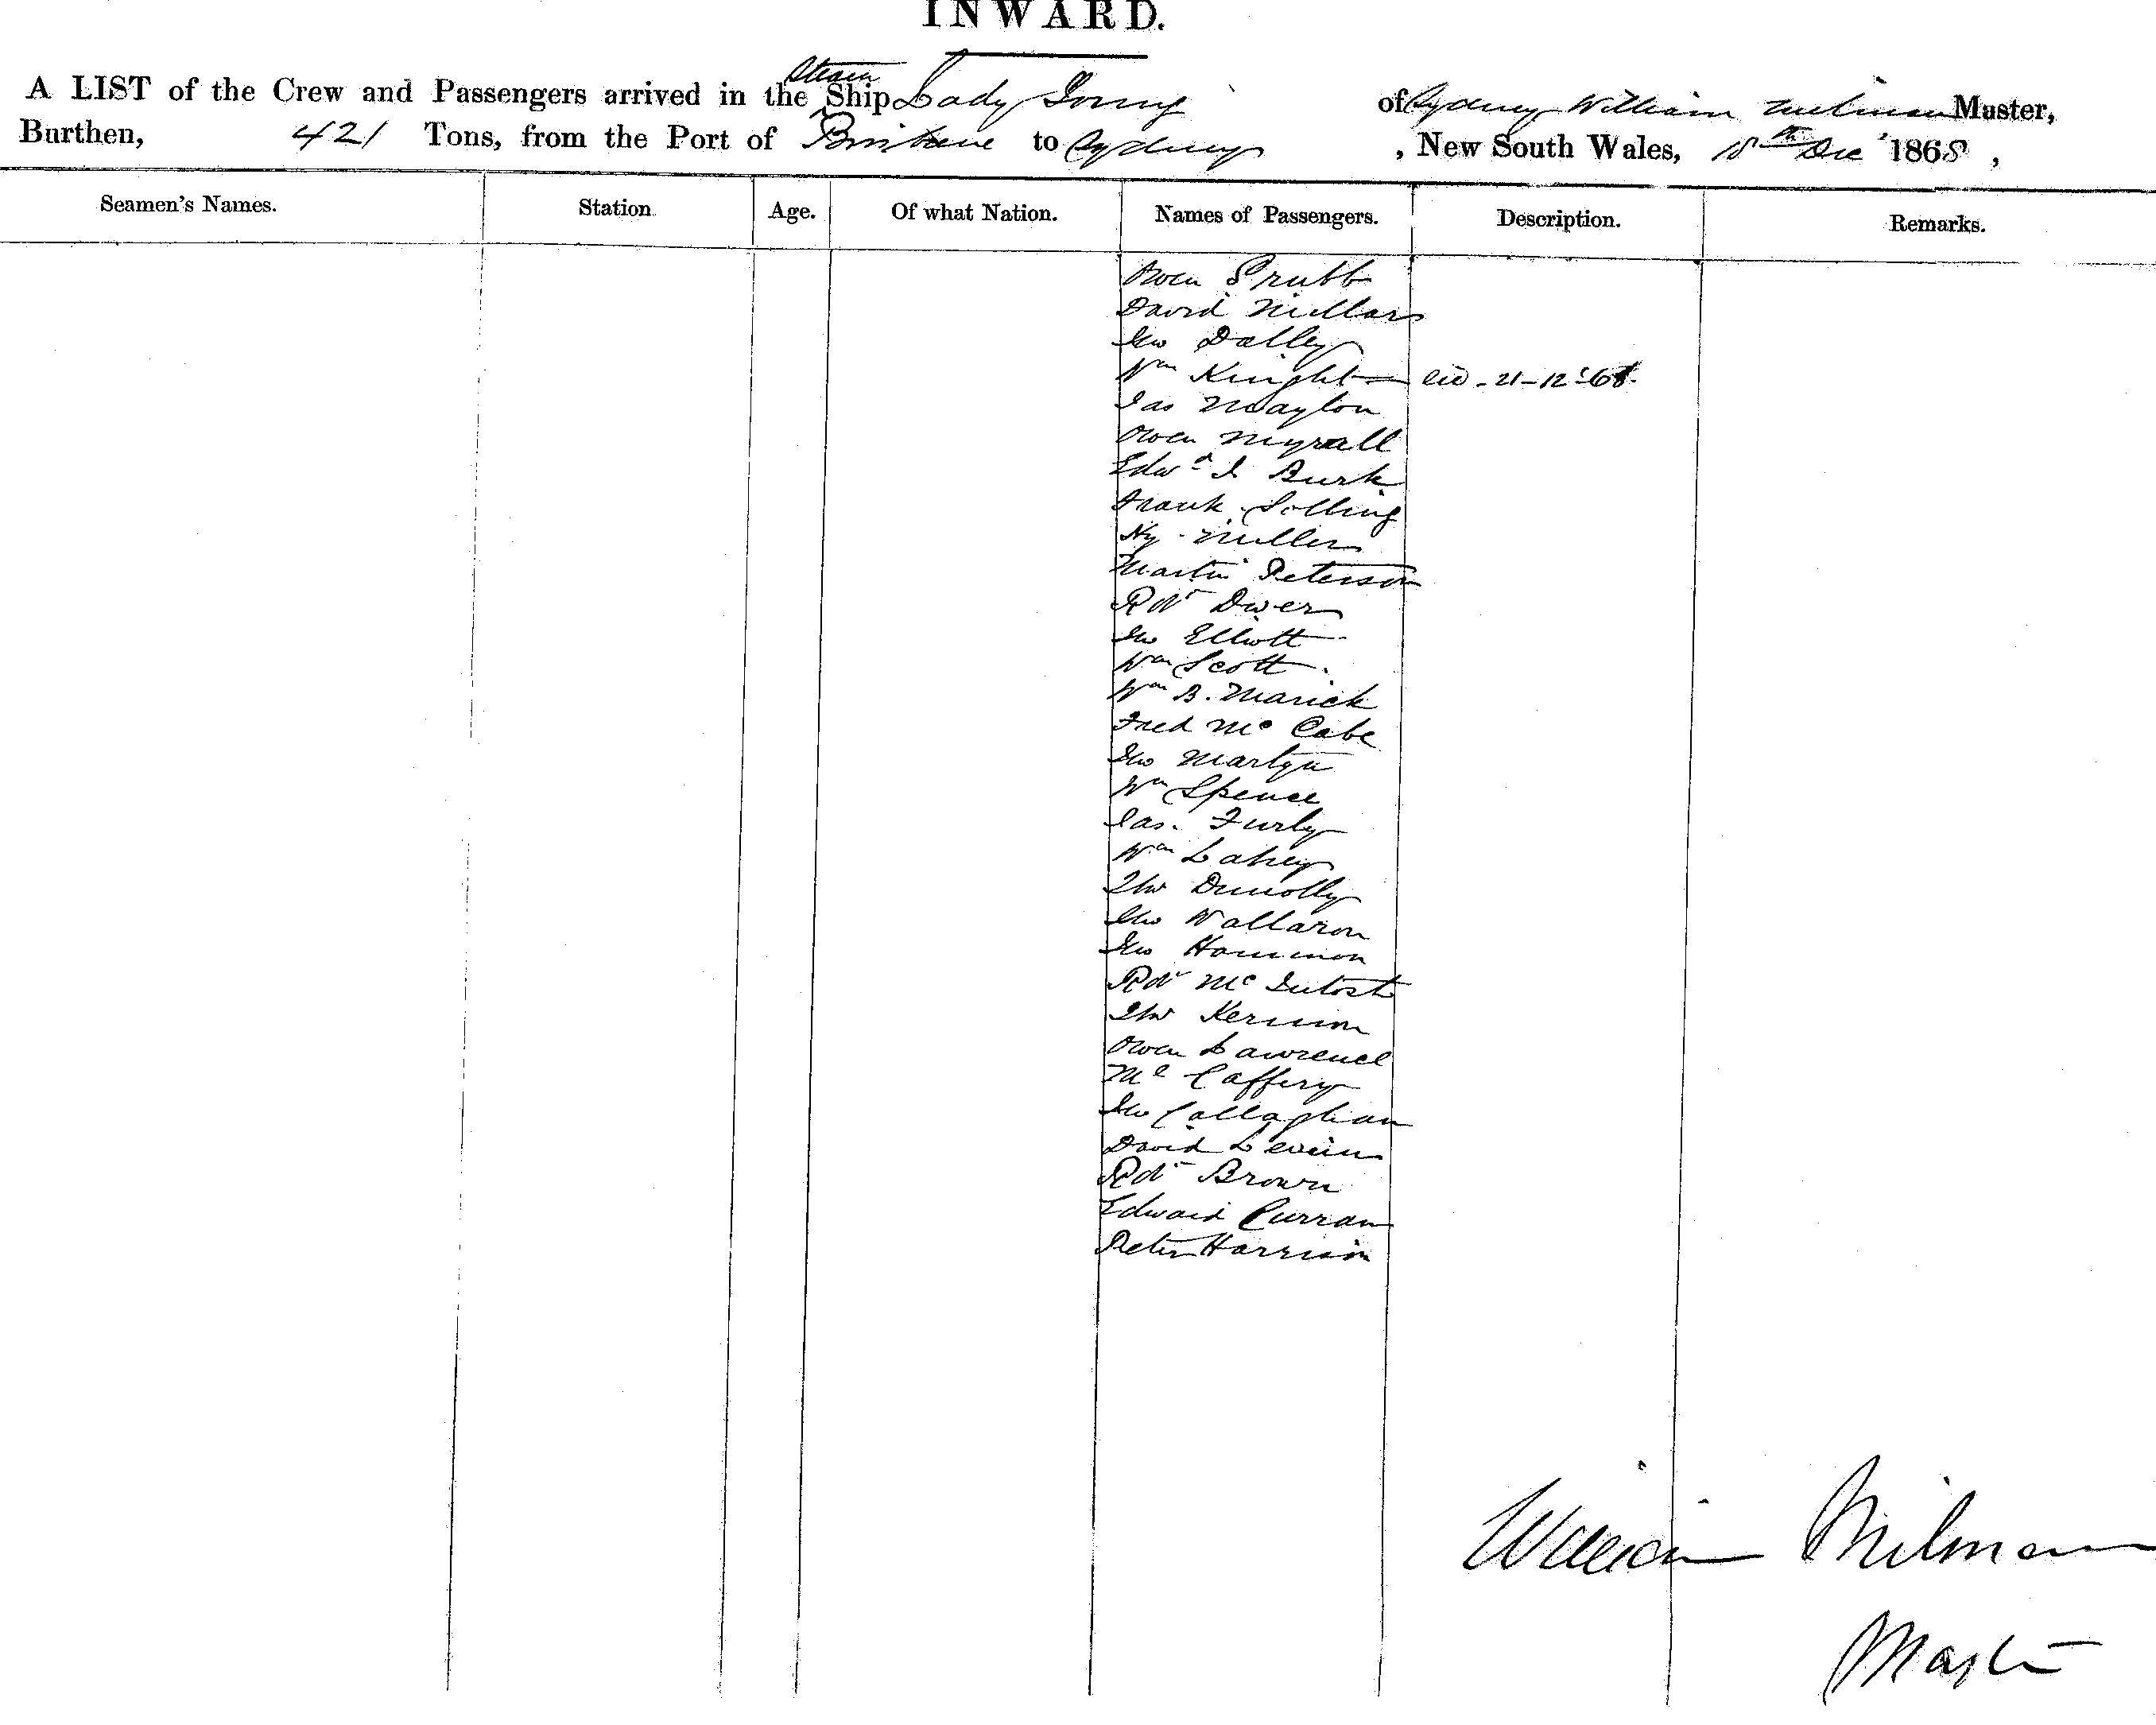 INWARD.
A LIST of the Crew and Passengers arrived in the Steam Ship Lady Young of Sydney William Milman Master,
Burthen, 421 Tons, from the Port of Brisbane to Sydney, New South Wales, 18th Dec 1868,
Seamen's Names. Station Age. Of what Nation. Names of Passengers. Description. Remarks.
Owen Grubb
David Millars
Jno Dalley
Wm Knight 21-12-68
Jas Maylon
Owen Myrall
Edwd J. Burk
Frank Solling
Hy Miller
Martin Peterson
Rdt Dwer
Jno Elliott
Wm Scott
Wm B. Marick
Fred McCabe
Jno Martyn
Wm Spence
Jas. Furly
Wm Lahey
Dunolly
Jno Wallaron
Jno Hammon
Rdt McIntosh
Kernion
Owen Lawrence
Mc Caffery
Jno Callaghan
David Levein
Rdt Brown
Edward Curran
Peter Harrison
William Milman
Master